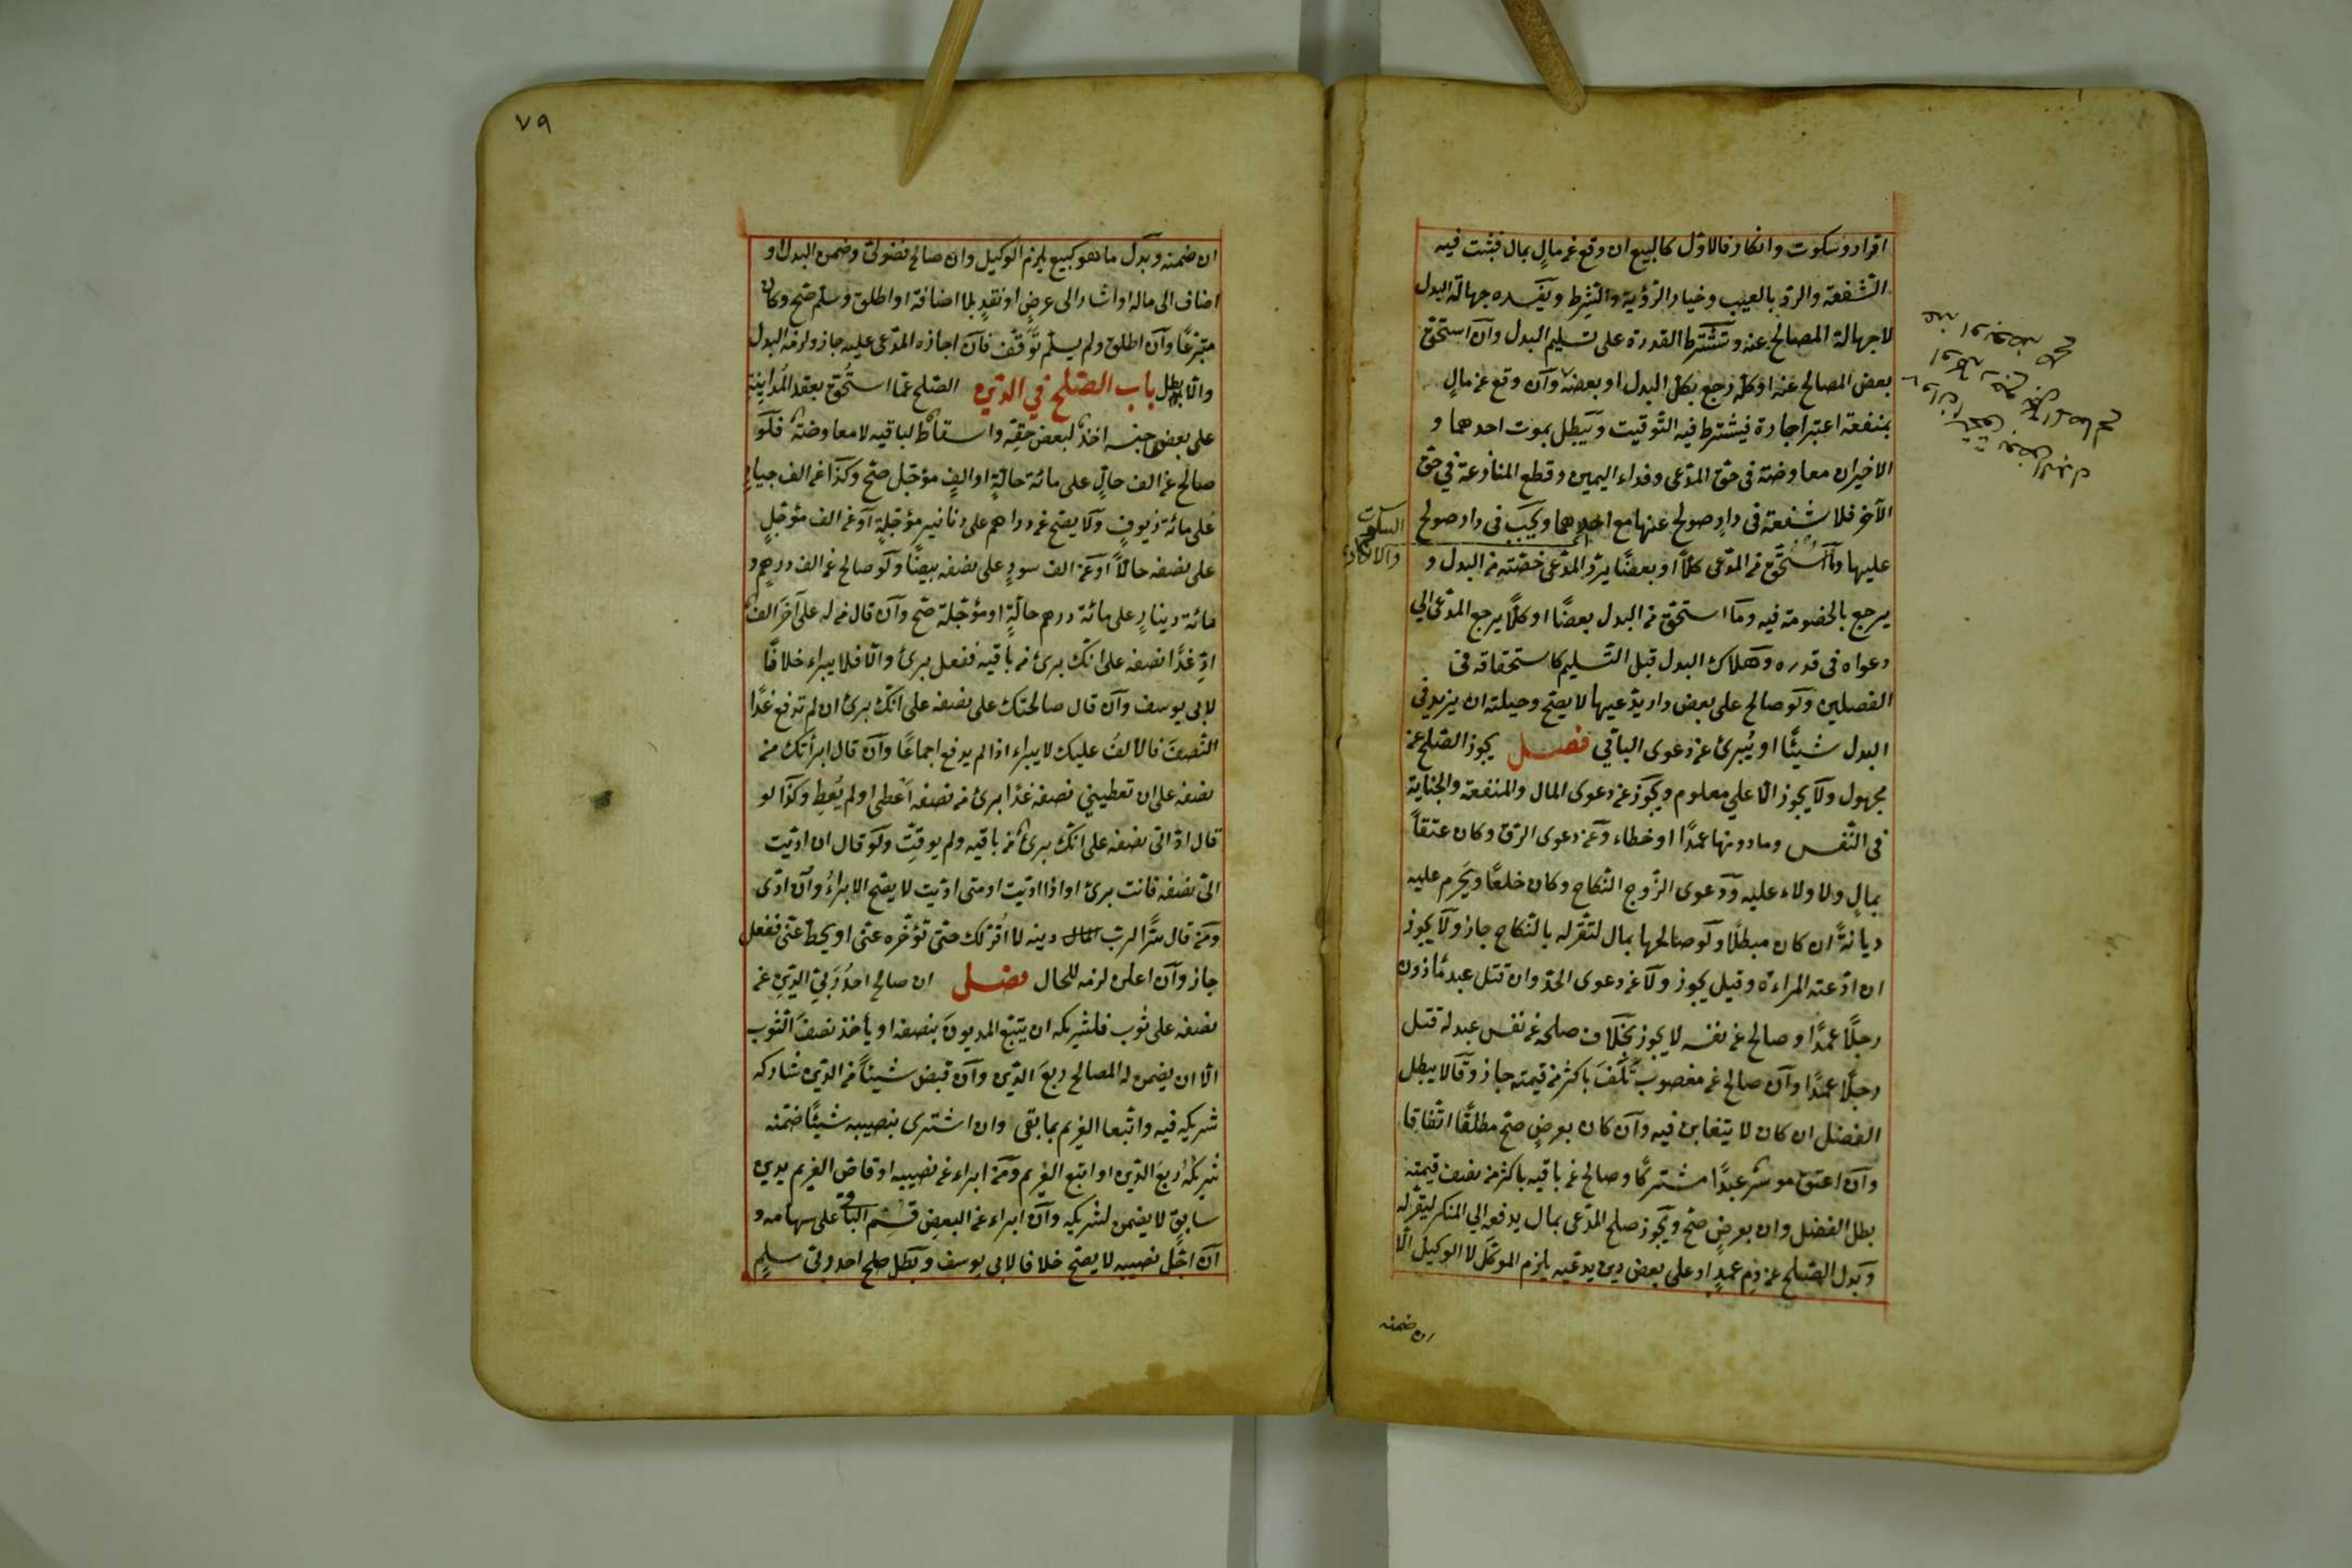 اقرار وسكوت وانكار فالاول كالبيع ان وقع عن مالٍ بمال فيثبت فيه
الشفعة والرد بالعيب وخيار الرؤية والشرط ويفسده جهالة البدل
لا جهالة المصالح عنه وتشترط القدرة على تسليم البدل وان استحق
بعض المصالح عنه او كلّه رجع بكل البدل او بعضه وان وقع عن مالٍ
بمنفعة اعتبر اجارة فيشترط فيه التوقيت ويبطل بموت احدهما و
الاخيران معاوضة في حق المدّعى وفداء اليمين وقطع المنازعة في حق
الآخر فلا شفعة في دارٍ صولح عنها مع احدهما ويجب في دار صولح
السكوت
والانكار
عليها وما استحق من المدّعى كلًّا او بعضًا يردّ المدّعى حصّته من البدل و
يرجع بالخصومة فيه وما استحق من البدل بعضًا او كلًّا يرجع المدّعى الى
دعواه في قدره وهلاك البدل قبل التسليم كاستحقاقه في
الفصلين ولو صالح على بعض دار يدّعيها لا يصح وحيلته ان يزيد في
البدل شيئًا او يُبرئ عن دعوى الباقي فصل يجوز الصلح عن
مجهول ولا يجوز الا على معلوم ويجوز عن دعوى المال والمنفعة والجناية
في النّفس وما دونها عمدًا او خطاء وعن دعوى الرق وكان عتقًا
بمالٍ ولا ولاء عليه ودعوى الزّوج النّكاح وكان خلعًا ويحرم عليه
ديانةً ان كان مبطلًا ولو صالحها بمال لتقرّ له بالنّكاح جاز ولا يجوز
ان ادّعته المراءة وقيل يجوز ولا عن دعوى الحدّ وان قتل عبد مأذون
رجلًا عمدًا وصالح عن نفسه لا يجوز بخلاف صلحه عن نفس عبد له قتل
رجلًا عمدًا وان صالح عن مغصوب تلف باكثر من قيمته جاز وقالا يبطل
الفضل ان كان لا يتغابن فيه وان كان بعرضٍ صح مطلقًا اتفاقا
وان اعتق موسر عبدًا مشتركًا وصالح عن باقيه باكثر من نصف قيمته
بطل الفضل وان بعرضٍ صح ويجوز صلح المدّعى بمال يدفعه الى المنكر ليقرّ له
وبدل الصّلح عن دم عمدٍ او على بعض دين يدعيه يلزم الموكّل لا الوكيل الّا
ان ضمنه
٧٩
ان ضمنه وبدل ما هو كبيع يلزم الوكيل وان صالح فضولىّ وضمن البدل او
اضاف الى ماله او اشار الى عرضٍ او نقدٍ بلا اضافة او اطلق وسلّم صح وكان
متبرعًا وان اطلق ولم يسلّم توقّف فان اجازه المدّعى عليه جاز ولزمه البدل
والّا بطل باب الصّلح في الدّين الصّلح عمّا استُحق بعقد المُداينة
على بعض جنسه اخذ لبعض حقّه واسقاط لباقيه لا معاوضة فلو
صالح عن الف حالٍّ على مائة حالّةٍ او الفٍ مؤجّل صح وكذا عن الف جيادٍ
على مائة زيوفٍ ولا يصح عن دراهم على دنانير مؤجّلةٍ او عن الف مؤجّلٍ
على نصفه حالًّا او عن الف سودٍ على نصفه بيضًا ولو صالح عن الف درهم و
مائة دينارٍ على مائة درهم حالّةٍ او مؤجّلة صح وان قال من له على آخر الف
ادّ غدًا نصفه على انّك برئ من باقيه ففعل برئ والّا فلا يبراء خلافًا
لابى يوسف وان قال صالحتك على نصفه على انّك برئ ان لم تدفع غدًا
النّصف فالالف عليك لا يبراء اذا لم يدفع اجماعًا وان قال ابرأتك من
نصفه على ان تعطيني نصفه غدًا برئ من نصفه اعطى او لم يُعطِ وكذا لو
قال ادّ الىّ نصفه على انّك برئ من باقيه ولم يوقّت ولو قال ان ادّيت
الىّ نصفه فانت برئ او اذا ادّيت او متى ادّيت لا يصح الابراءُ وان ادّى
ومن قال سرًّا لرب المال دينه لا اقرّ لك حتى تؤخّره عنّى او تحطّ عنّى ففعل
جاز وان اعلن لزمه للحال فصل ان صالح احدُ ربّي الدّين عن
نصفه على ثوب فلشريكه ان يتبع المديونَ بنصفه او يأخذ نصف الثّوب
الّا ان يضمن له المصالح ربعَ الدّين وان قبض شيئًا من الدّين شاركه
شريكه فيه واتّبعا الغريم بما بقى وان اشترى بنصيبه شيئًا ضمّنه
شريكه ربعَ الدّين او اتبع الغريم ومن ابراء عن نصيبه او قاصّ الغريم بدين
سابقٍ لا يضمن لشريكه وان ابراء عن البعض قسم الباقى على سهامه و
ان اجّل نصيبه لا يصح خلافا لابى يوسف وبطل صلح احد ربّى سلمٍ